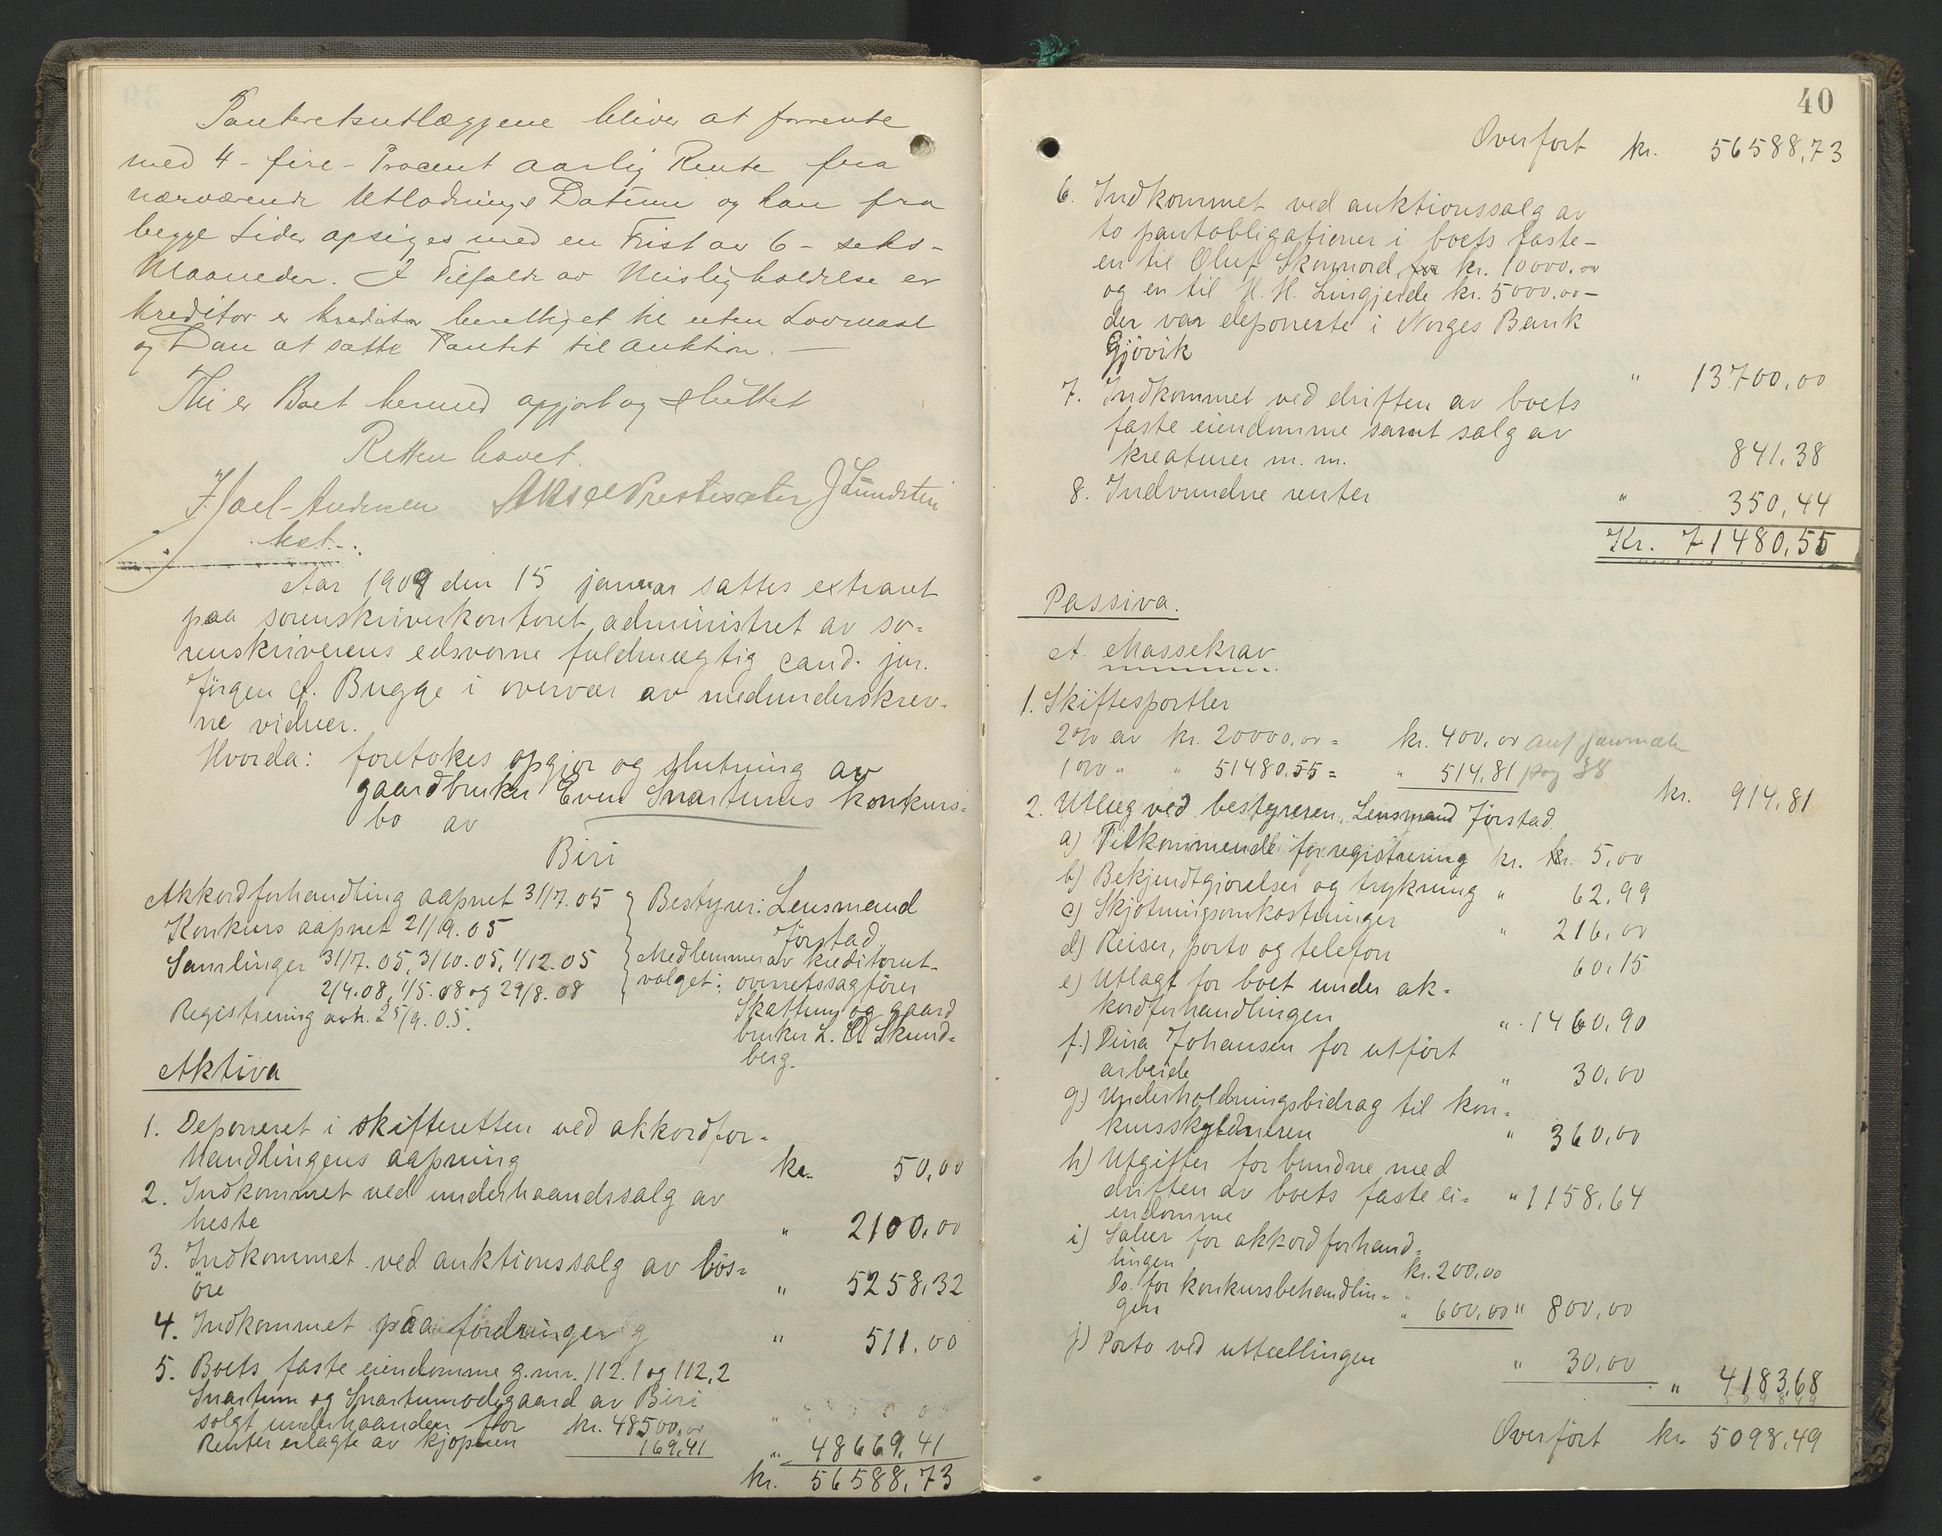 Panteretsutlæggene bliver at forrente
med 4 - fire - Procent aarlig Rente fra
nærværende Utlodnings Datum og kan fra
begge sider opsiges med en Frist av 6 - seks -
Maaneder. I Tilfælde av Misligholdelse er
kreditor er kreditor berettiget til uten Lovmaal
og Dom at sætte Pantet til Auktion. —
Thi er Boet hermed opgjort og sluttet
Retten hævet.
Joel-Andersen Aksel Prestesæter J Lundstein
kst.
Aar 1909 den 15 januar sattes extraret
paa sorenskriverkontoret, administret av so-
renskriverens edsvorne fuldmægtig cand. jur.
Jörgen A. Bugge i overvær av medunderskrev-
ne vidner.
Hvorda: foretokes opgjör og slutning av
gaardbruker Even Snartums konkurs-
bo av
Biri
Akkordforhandling aapnet 31/7.05
Konkurs aapnet 21/9.05
Samlinger 31/7.05, 3/10.05, 1/12.05
2/4.08, 1/5.08 og 29/8.08
Registrering avh. 25/9.05.
Bestyrer: Lensmand
Jörstad.
Medlemmer av kreditorut-
valget: overretssagförer
Skattum og gaard
bruker L. A Skund-
berg.
Aktiva
1. Deponeret i skifteretten ved akkordfor-
handlingens aapning kr. 50,00
2. Indkommet ved underhaandssalg av
heste " 2100,00
3. Indkommet ved auktionssalg av lös-
öre " 5258,32
4. Indkommet paa fordringer " 511.00
5. Boets faste eiendomme g.nr. 112.1 og 112,2
Snartum og Snartumodegaard av Biri
solgt underhaanden for kr. 48500.00
Renter erlagte av kjöperen 169,41 " 48669,41
kr. 56588,73
40
Overfört kr. 56588,73
6. Indkommet ved auktionssalg av
to pantobligationer i boets faste-
en til Oluf Skonnord for kr. 10000.00
og en til H. H. Lingjerde kr. 5000.00 -
der var deponerte i Norges Bank
Gjövik " 13700,00
7. Indkommet ved driften av boets
faste eiendomme samt salg av
kreaturer m. m. 841,38
8. Indvundne renter " 350,44
Kr. 71480,55
Passiva.
A. Massekrav
1. Skiftesportler
2% av kr. 20000.00 = kr. 400,00 anf journale
1% " " 51480.55 = " 514,81 pag 38
kr. 914,81
2. Utlæg ved bestyreren, Lensmand Jörstad
a) Tilkommende for registrering kr. kr. 5,00
b) Bekjendtgjörelser og trykning " 62,99
c) Skjötningsomkostninger " 216,00
d) Reiser, porto og telefon 60,15
e) Utlagt for boet under ak-
kordforhandlingen " 1460,90
f.) Dina Johansen for utfört
arbeide " 30,00
g) Underholdningsbidrag til kon-
kursskyldneren " 360,00
h) Utgifter forbundne med
driften av boets faste ei- " 1158,64
endomme
i) Salær for akkordforhand-
lingen kr. 200,00
Do. for konkursbehandlin-
gen " 600,00 " 800,00
j) Porto ved uttællingen " 30,00
" 4183,68
Overfört kr. 5098,49